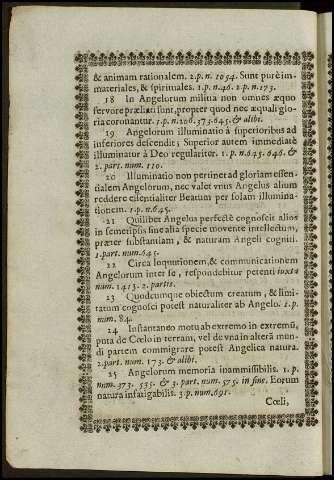 & animam rationalem. 2.p.n. 1054. Sunt purè im-
materiales, & spirituales. 1.p.n.46. 2.p.n.173.
18 In Angelorum militia non omnes æquo
fervore præliati sunt, propter quod nec æquali glo-
ria coronantur. 3.p.n.206.373.645.& alibi.
19 Angelorum illuminatio à superioribus ad
inferiores descendit; Superior autem immediatè
illuminatur à Deo regulariter. 1. p. n.645. 646. &
2. part. num. 110.
20 Illuminatio non pertinet ad gloriam essen-
tialem Angelorum, nec valet vnus Angelus alium
reddere essentialiter Beatum per solam illumina-
tionem. 1.p.n.645.
21 Quilibet Angelus perfectè cognoscit alios
in semetipsis sine alia specie movente intellectum,
præter substantiam, & naturam Angeli cogniti.
1.part.num.645.
22 Circa loquutionem, & communicationem
Angelorum inter se, respondebitur petenti iuxta
num. 1413. 2. partis.
23 Quodcumque obiectum creatum, & limi-
tatum cognosci potest naturaliter ab Angelo. 1.p.
num. 84.
24 Instantaneo motu ab extremo in extremũ,
puta de Cœlo in terram, vel de vna in alterã mun-
di partem commigrare potest Angelica natura.
2.part. num. 173. & alibi.
25 Angelorum memoria inamissibilis. 1. p.
num.373. 535. & 3. part. num. 575. in fine. Eorum
natura infatigabilis. 3.p.num.691.
Cœli,